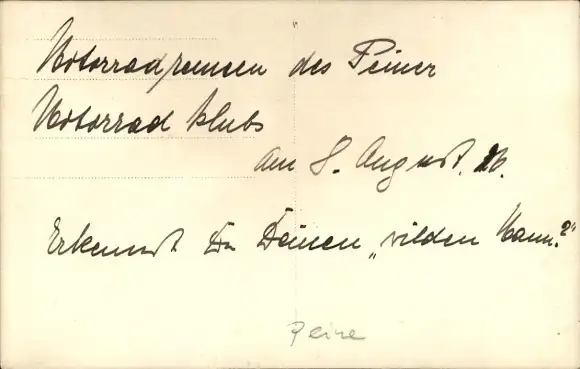 Motorradrennen des Peiner
Motorrad klubs
am 8. August. 26.
Erkennst Du Deinen „wilden Mann?"
Peine